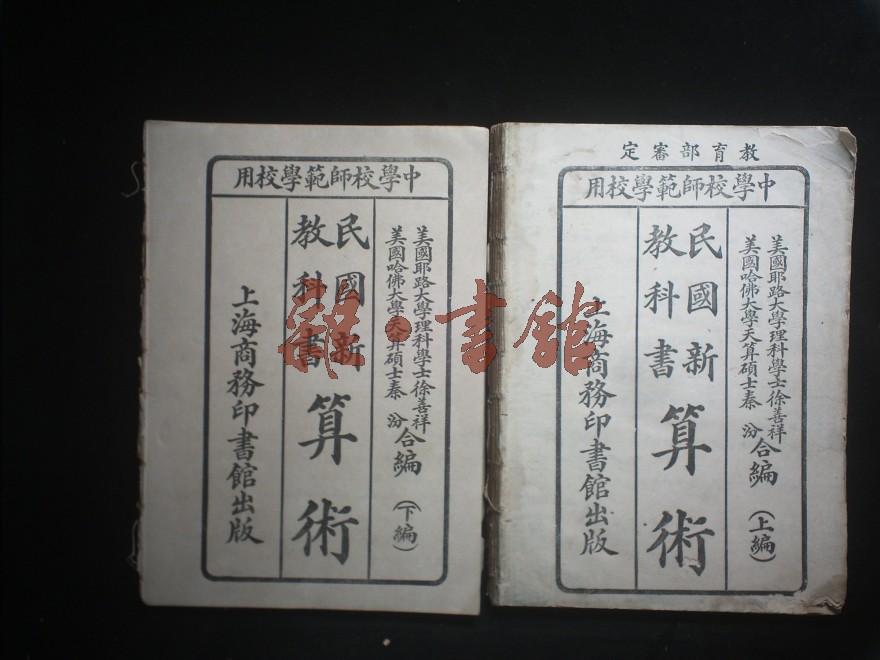 教育部審定
中學校師範學校用
美國耶路大學理科學士徐善祥
美國哈佛大學天算碩士秦汾
合編
(上編)
民國新
教科書
算術
上海商務印書館出版
中學校師範學校用
美國耶路大學理科學士徐善祥
美國哈佛大學天算碩士秦汾
合編
(下編)
民國新
教科書
算術
上海商務印書館出版
·書館